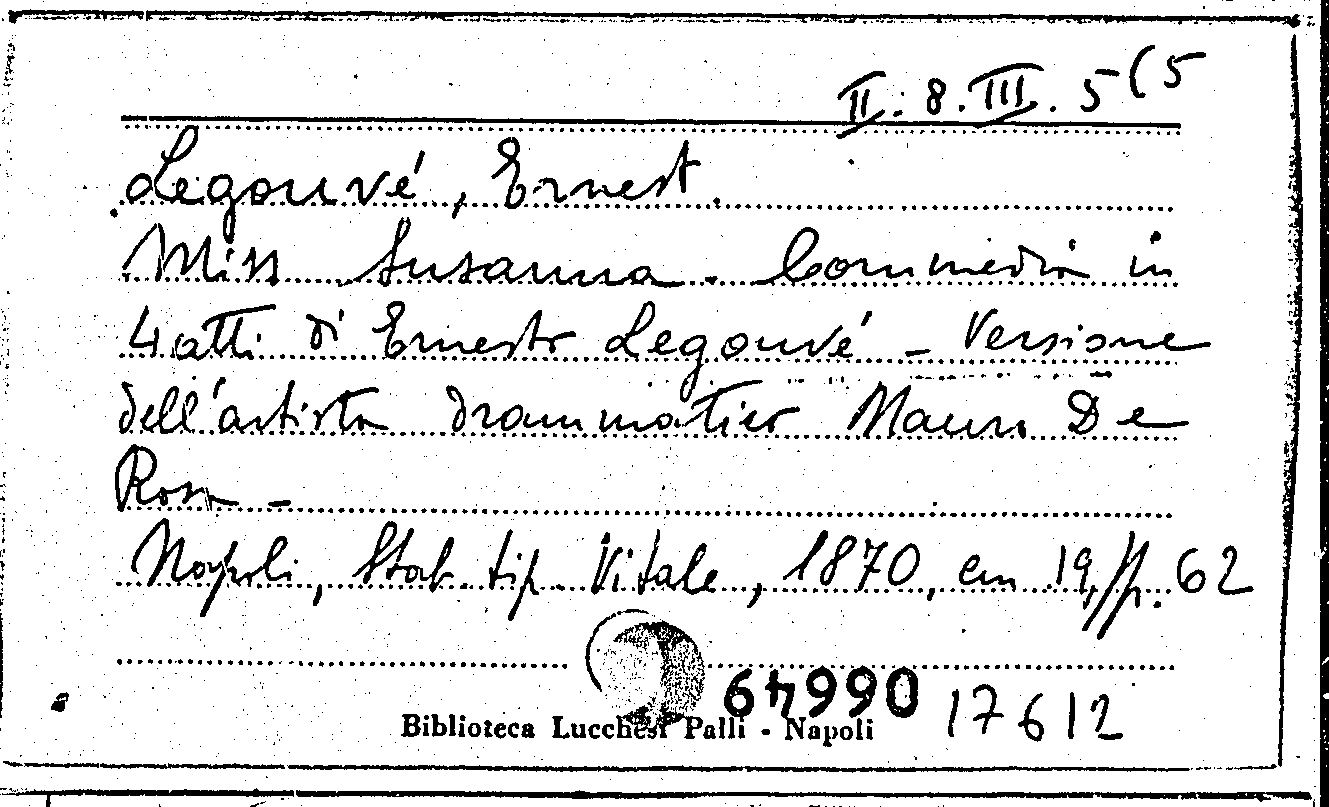 II. 8. III. 5 (5
Legouvé, Ernest.
Miss Susanna. Commedia in
4 atti di Ernesto Legouvé - Versione
dell'artista drammatico Mauro De
Rosa -
Napoli, Stab. tip. Vitale, 1870, cm 19, pp. 62
066649
17612
Biblioteca Lucchesi Palli - Napoli